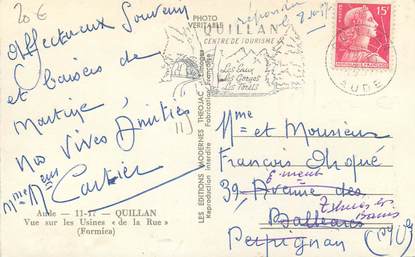 20€
Affectueux Souvenir
et baisers de
Martine,
Nos Vives Amitiés
Mme Mr Cartier
Aude - 11-17 - QUILLAN
Vue sur les Usines « de la Rue »
(Formica)
PHOTO
VERITABLE
LES EDITIONS MODERNES THEOJAC
Reproduction interdite
Fabrication Française
QUILLAN
CENTRE DE TOURISME
Les Eaux
Les Gorges
Les Forêts
15F
AUDE
Mme et Monsieur
François
39, Avenue des
Baléares
Perpignan